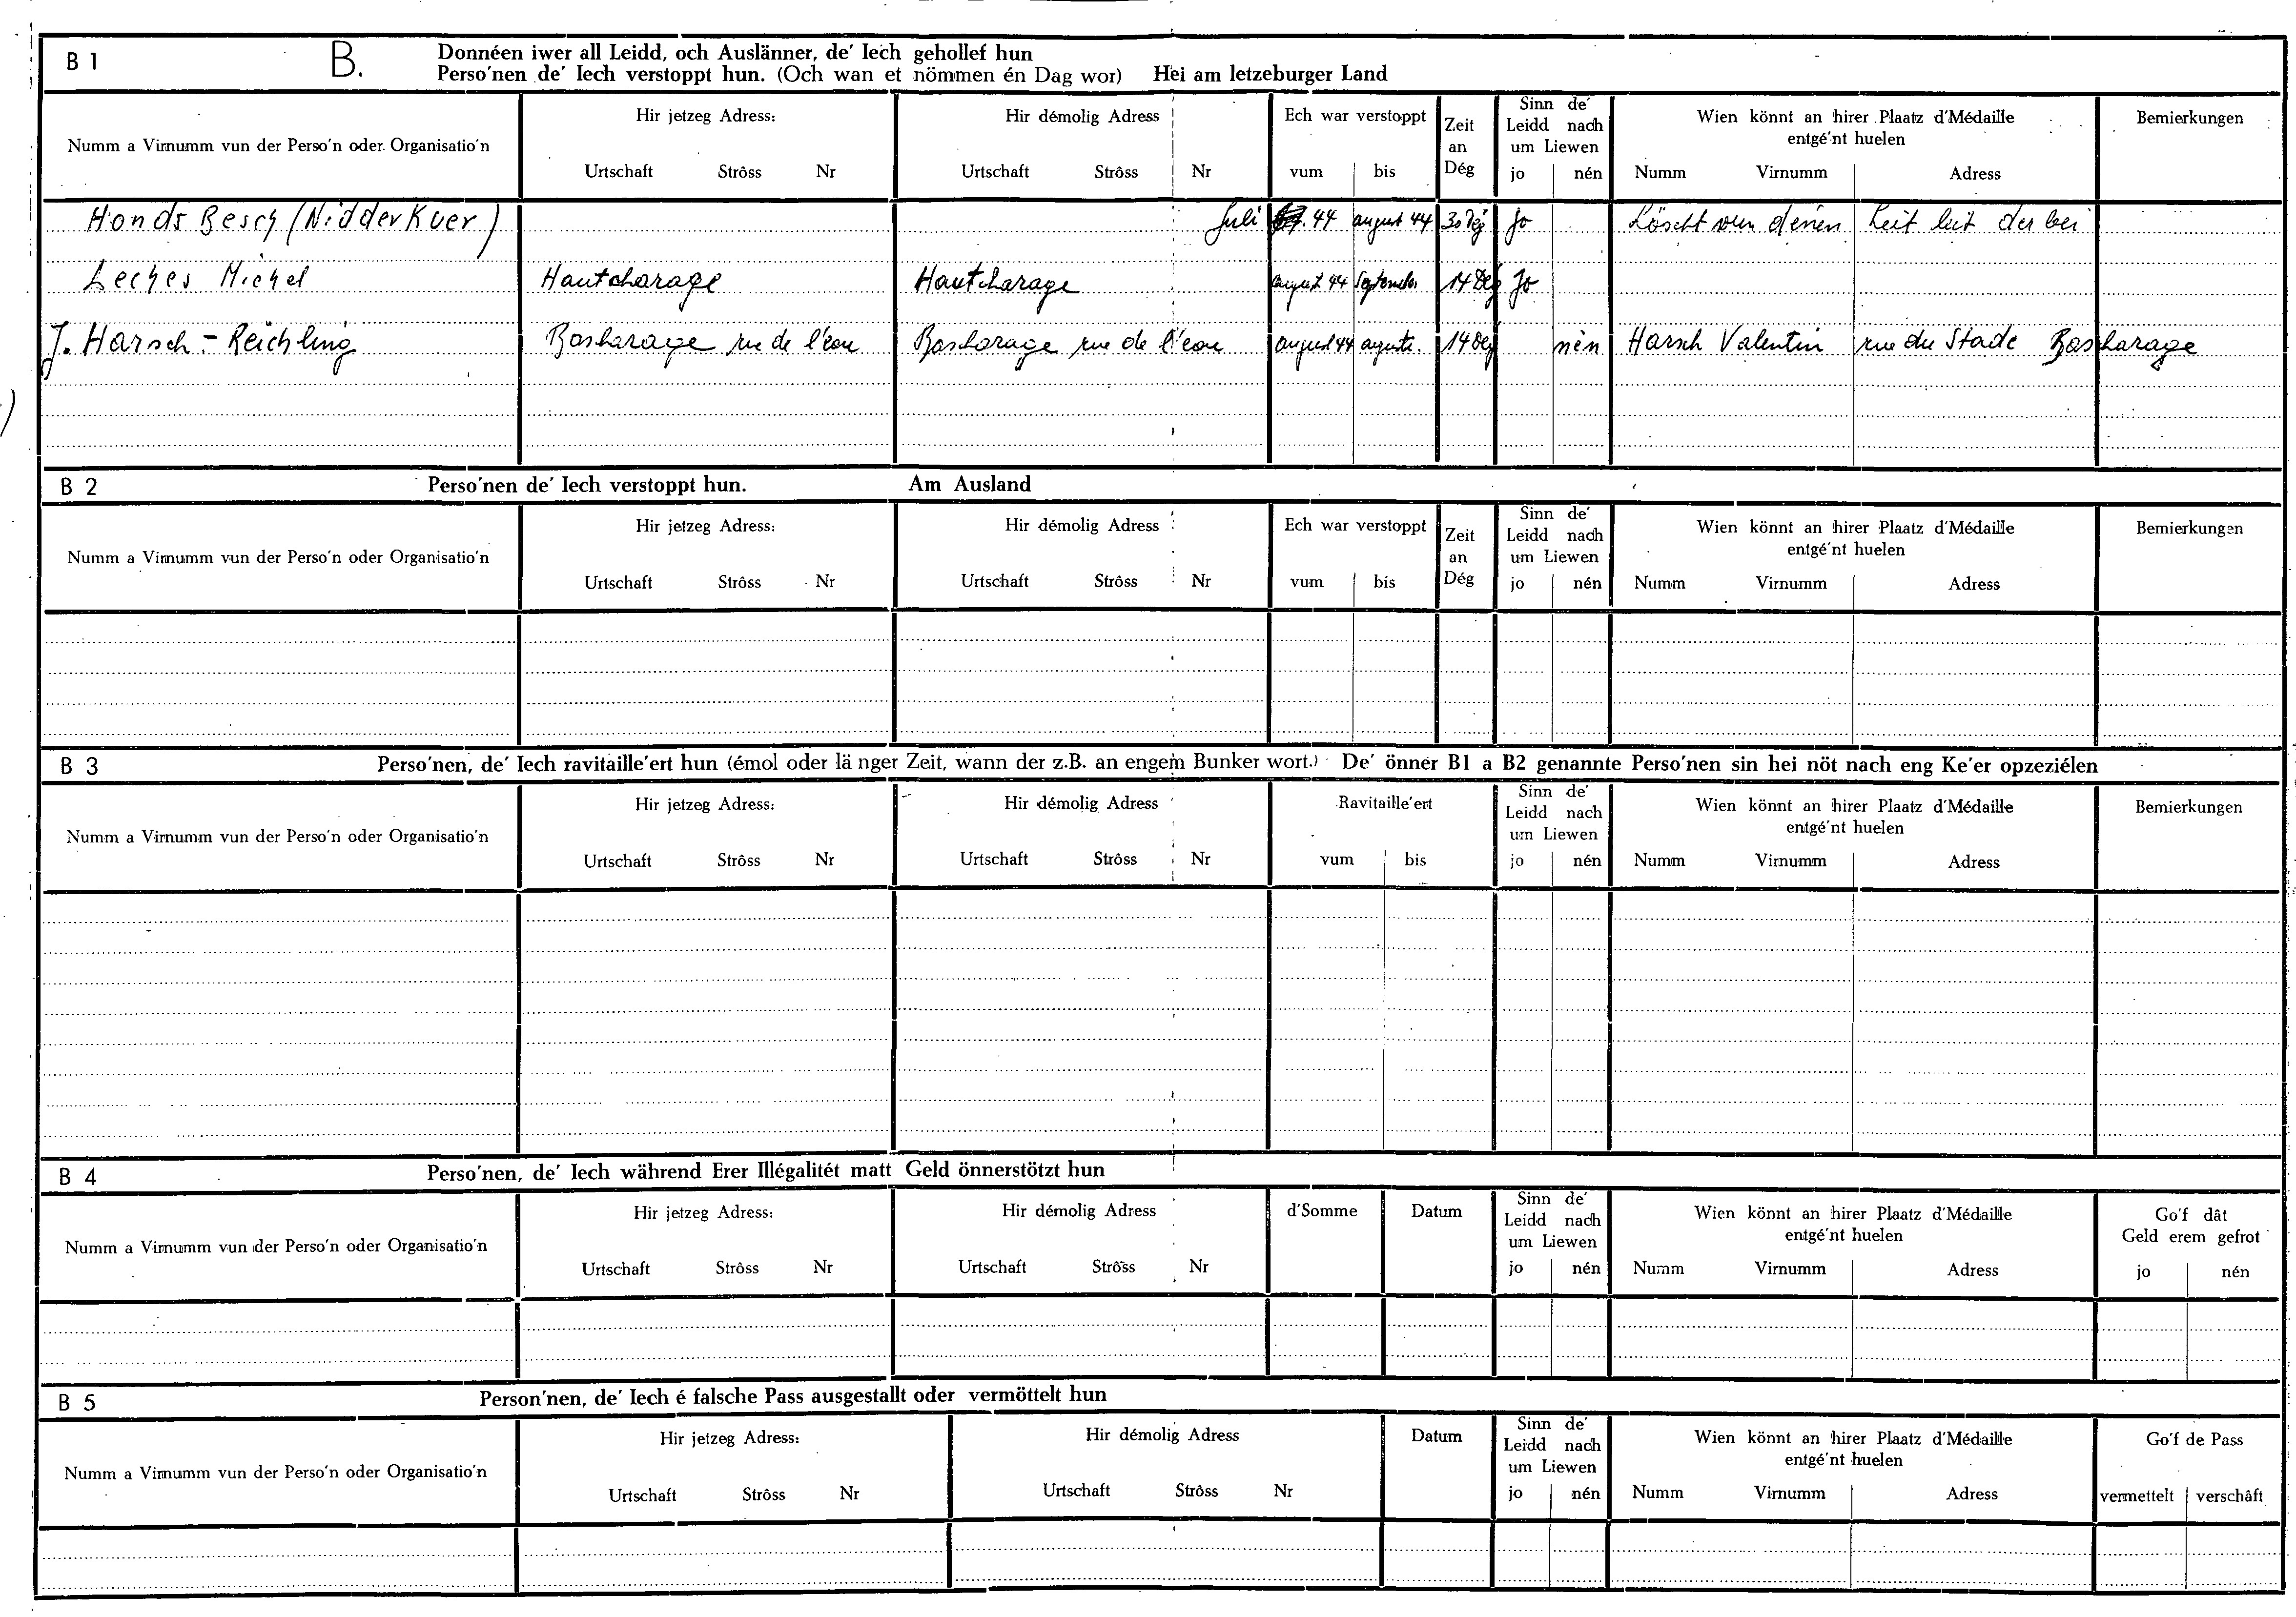 B 1 B. Donnéen iwer all Leidd, och Auslänner, de' Iech gehollef hun
Perso'nen de' Iech verstoppt hun. (Och wan et nömmen én Dag wor) Hei am letzeburger Land
Numm a Virnumm vun der Perso'n oder Organisatio'n
Hir jetzeg Adress:
Urtschaft Strôss Nr
Hir démolig Adress
Urtschaft Strôss Nr
Ech war verstoppt
vum bis
Zeit
an
Dég
Sinn de'
Leidd nach
um Liewen
jo nén
Wien könnt an hirer Plaatz d'Médaille
entgé'nt huelen
Numm Virnumm Adress
Bemierkungen
Honds Besch (Nidderkuer) Juli 44 august 44 30 Dég Jo Löscht vun denen Leit leit der bei
Leches Michel Hautcharage Hautcharage august 44 September 14 Deg Jo
J. Harsch - Reichling Bascharage rue de l'eau Bascharage rue de l'eau august 44 auguste. 14 Deg nèn Harsch Valentin rue du Stade Bascharage
B 2 Perso'nen de' Iech verstoppt hun. Am Ausland
Numm a Virnumm vun der Perso'n oder Organisatio'n
Hir jetzeg Adress:
Urtschaft Strôss Nr
Hir démolig Adress
Urtschaft Strôss Nr
Ech war verstoppt
vum bis
Zeit
an
Dég
Sinn de'
Leidd nach
um Liewen
jo nén
Wien könnt an hirer Plaatz d'Médaille
entgé'nt huelen
Numm Virnumm Adress
Bemierkungen
B 3 Perso'nen, de' Iech ravitaille'ert hun (émol oder lä nger Zeit, wann der z.B. an engem Bunker wort.) De' önner B1 a B2 genannte Perso'nen sin hei nöt nach eng Ke'er opzeziélen
Numm a Virnumm vun der Perso'n oder Organisatio'n
Hir jetzeg Adress:
Urtschaft Strôss Nr
Hir démolig Adress
Urtschaft Strôss Nr
Ravitaille'ert
vum bis
Sinn de'
Leidd nach
um Liewen
jo nén
Wien könnt an hirer Plaatz d'Médaille
entgé'nt huelen
Numm Virnumm Adress
Bemierkungen
B 4 Perso'nen, de' Iech während Erer Illégalitét matt Geld önnerstötzt hun
Numm a Virnumm vun der Perso'n oder Organisatio'n
Hir jetzeg Adress:
Urtschaft Strôss Nr
Hir démolig Adress
Urtschaft Strôss Nr
d'Somme
Datum
Sinn de'
Leidd nach
um Liewen
jo nén
Wien könnt an hirer Plaatz d'Médaille
entgé'nt huelen
Numm Virnumm Adress
Go'f dât
Geld erem gefrot
jo nén
B 5 Person'nen, de' Iech é falsche Pass ausgestallt oder vermöttelt hun
Numm a Virnumm vun der Perso'n oder Organisatio'n
Hir jetzeg Adress:
Urtschaft Strôss Nr
Hir démolig Adress
Urtschaft Strôss Nr
Datum
Sinn de'
Leidd nach
um Liewen
jo nén
Wien könnt an hirer Plaatz d'Médaille
entgé'nt huelen
Numm Virnumm Adress
Go'f de Pass
vermettelt verschâft